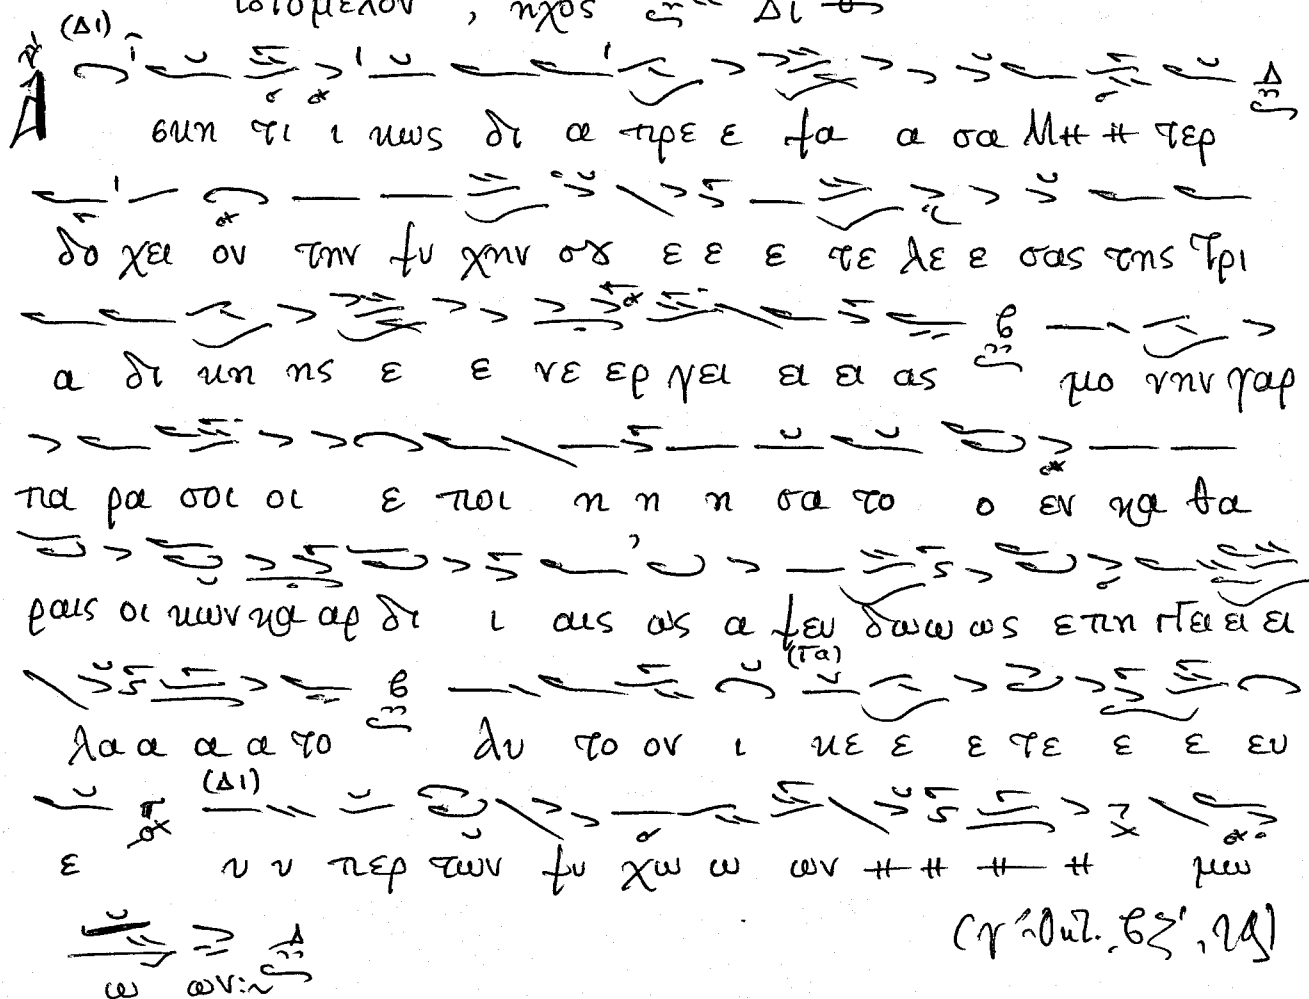 ιδιόμελον, ηχος Δι
(Δι)
Α σκη τι ι κως δι α πρε ε ψα α σα Μη η τερ Δ
δο χει ον την ψυ χην ου ε ε ε τε λε ε σας της Τρι
α δι κη ης ε ε νε ερ γει ει ει ας β μο νην γαρ
πα ρα σοι οι ε ποι η η η σα το ο εν κα θα
ραις οι κων κα αρ δι ι αις ως α ψευ δω ω ως ε πη γγει ει ει
(Γα)
λα α α α το β δυ το ον ι κε ε ε τε ε ε ευ
(Δι)
ε υ υ περ των ψυ χω ω ων η η η η μω
ω ων:~ Δ